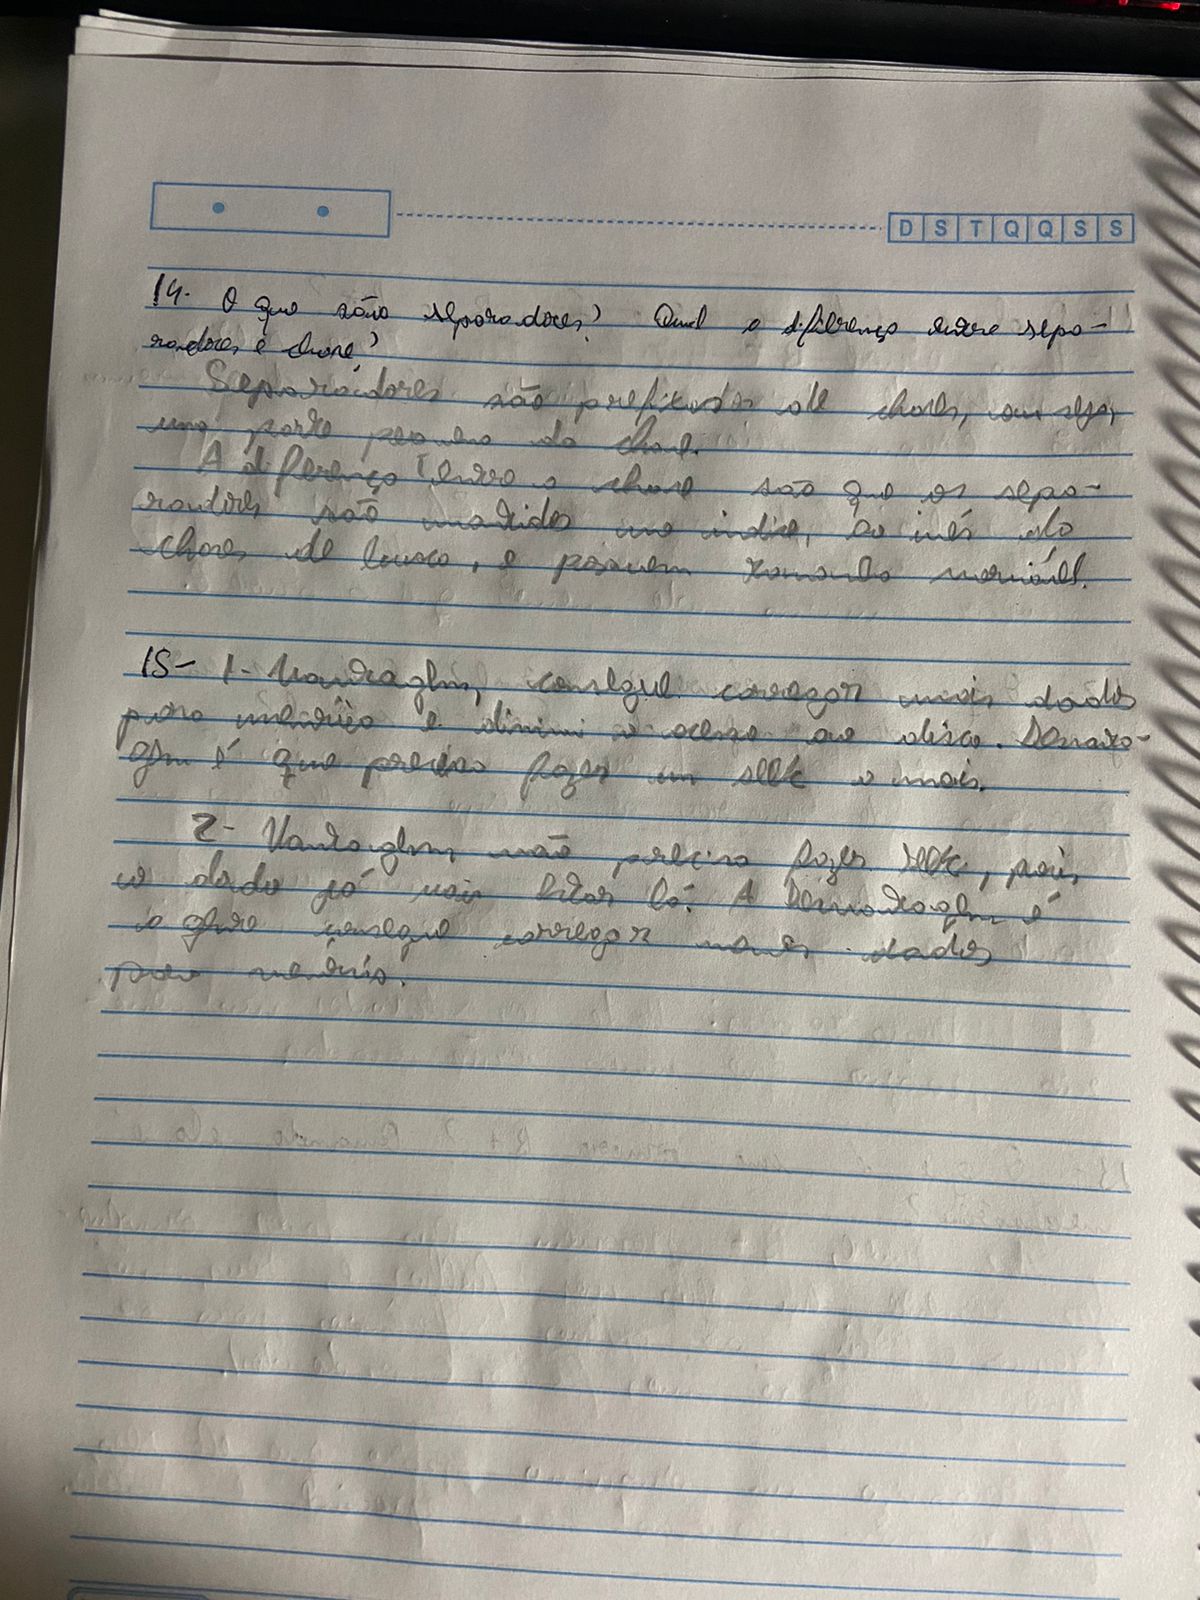 D S T Q Q S S
14. O que são separadores? Qual a diferença entre sepa-
radores e chave?
Separadores são prefixados de chaves, ou seja,
uma parte pequena da chave.
A diferença entre a chave são que os sepa-
radores são mantidos no indice, ao invés da
chaves de busca, e possuem tamanho variável.
15- 1- Vantagem, consegue carregar mais dados
para memória e diminui o acesso ao disco. Desvanta-
gem é que preciso fazer um seek a mais.
2- Vantagem não preciso fazer seek, pois,
o dado já vai estar lá. A Desvantagem é
consegue carregar menos dados
para memória.